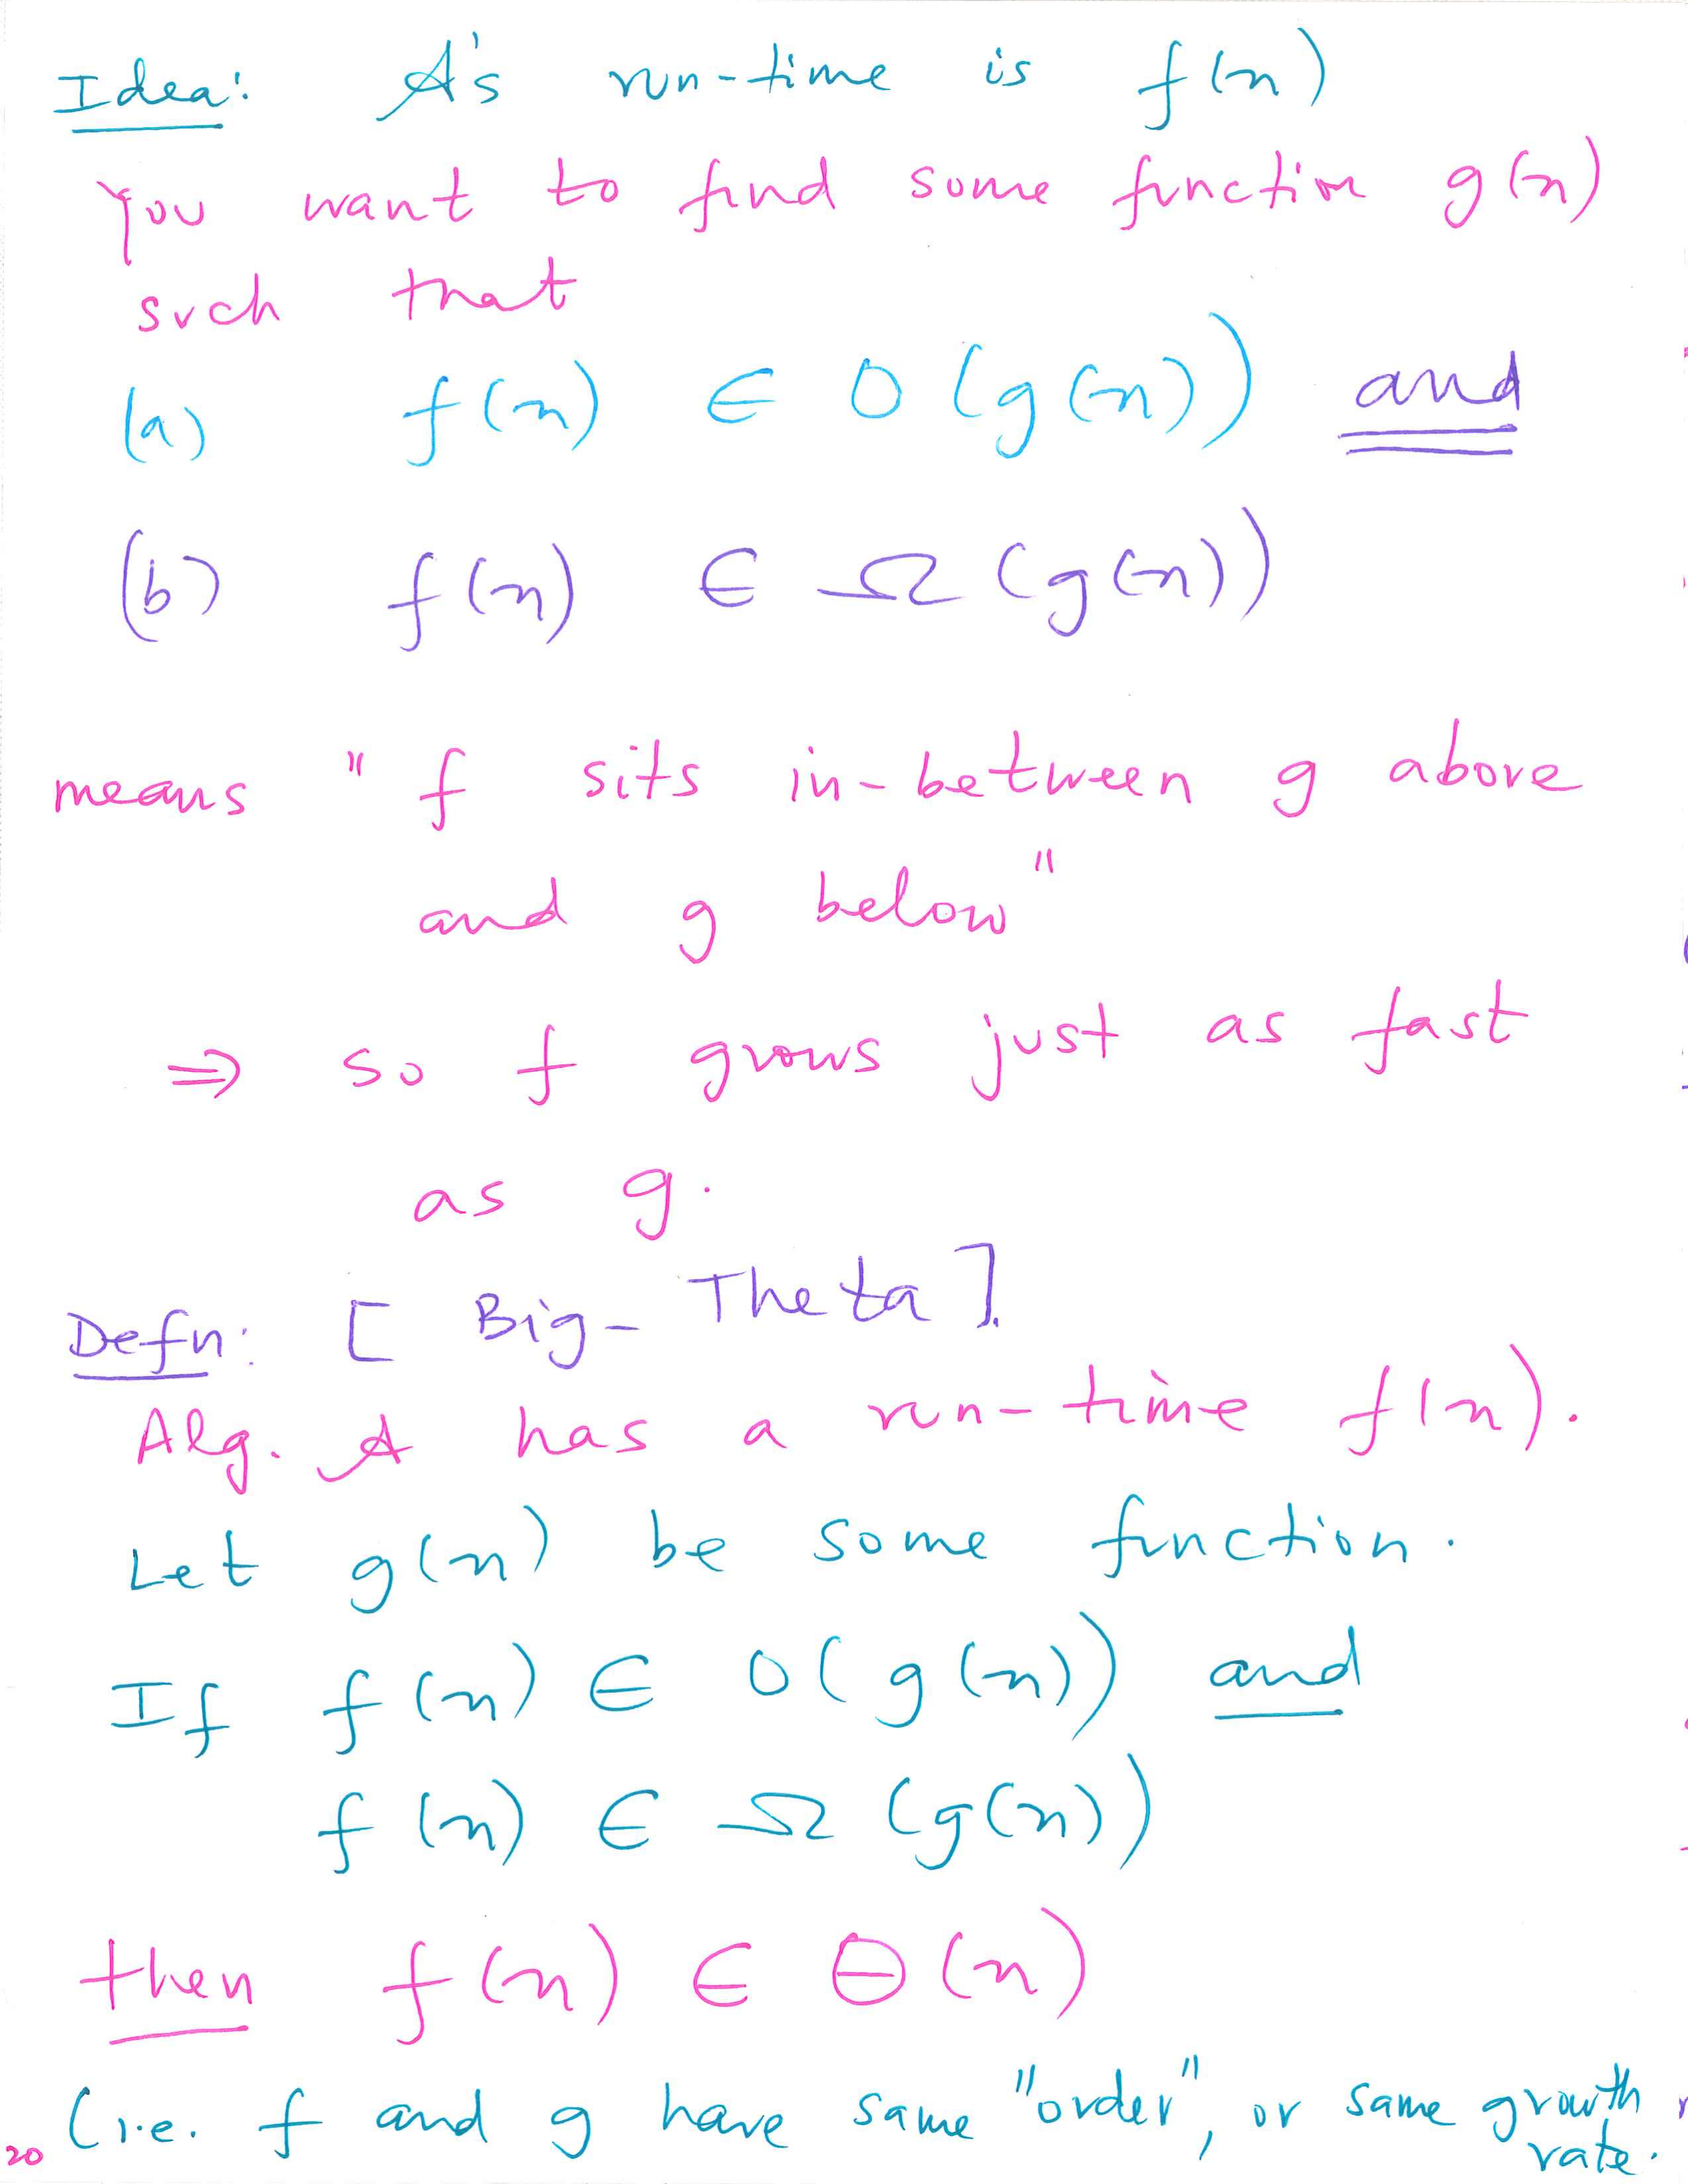 Idea: A's run-time is f(n)
You want to find some function g(n)
such that
(a) f(n) ∈ O(g(n)) and
(b) f(n) ∈ Ω(g(n))
means "f sits in-between g above
and g below"
⇒ so f grows just as fast
as g.
Defn: [Big-Theta].
Alg. A has a run-time f(n).
Let g(n) be some function.
If f(n) ∈ O(g(n)) and
f(n) ∈ Ω(g(n))
then f(n) ∈ Θ(n)
(i.e. f and g have same "order", or same growth
rate.
20